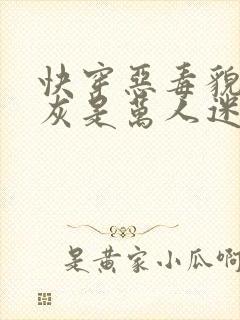 快穿惡毒貌
灰是萬人迷
是黄家小瓜啊